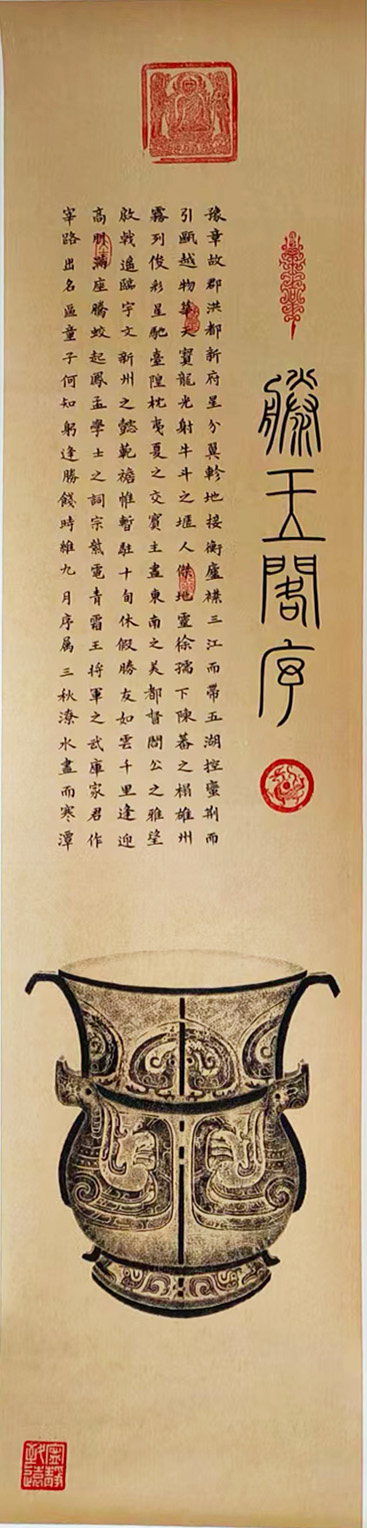 滕王閣序
豫章故郡洪都新府星分翼軫地接衡廬襟三江而帶五湖控蠻荆而
引甌越物華天寳龍光射牛斗之墟人傑地靈徐孺下陳蕃之榻雄州
霧列俊彩星馳臺隍枕夷夏之交賓主盡東南之美都督閻公之雅望
啟戟遙臨宇文新州之懿範襜帷暫駐十旬休假勝友如雲千里逢迎
高朋滿座騰蛟起鳳孟學士之詞宗紫電青霜王將軍之武庫家君作
宰路出名區童子何知躬逢勝餞時維九月序属三秋潦水盡而寒潭
寧靜
致遠